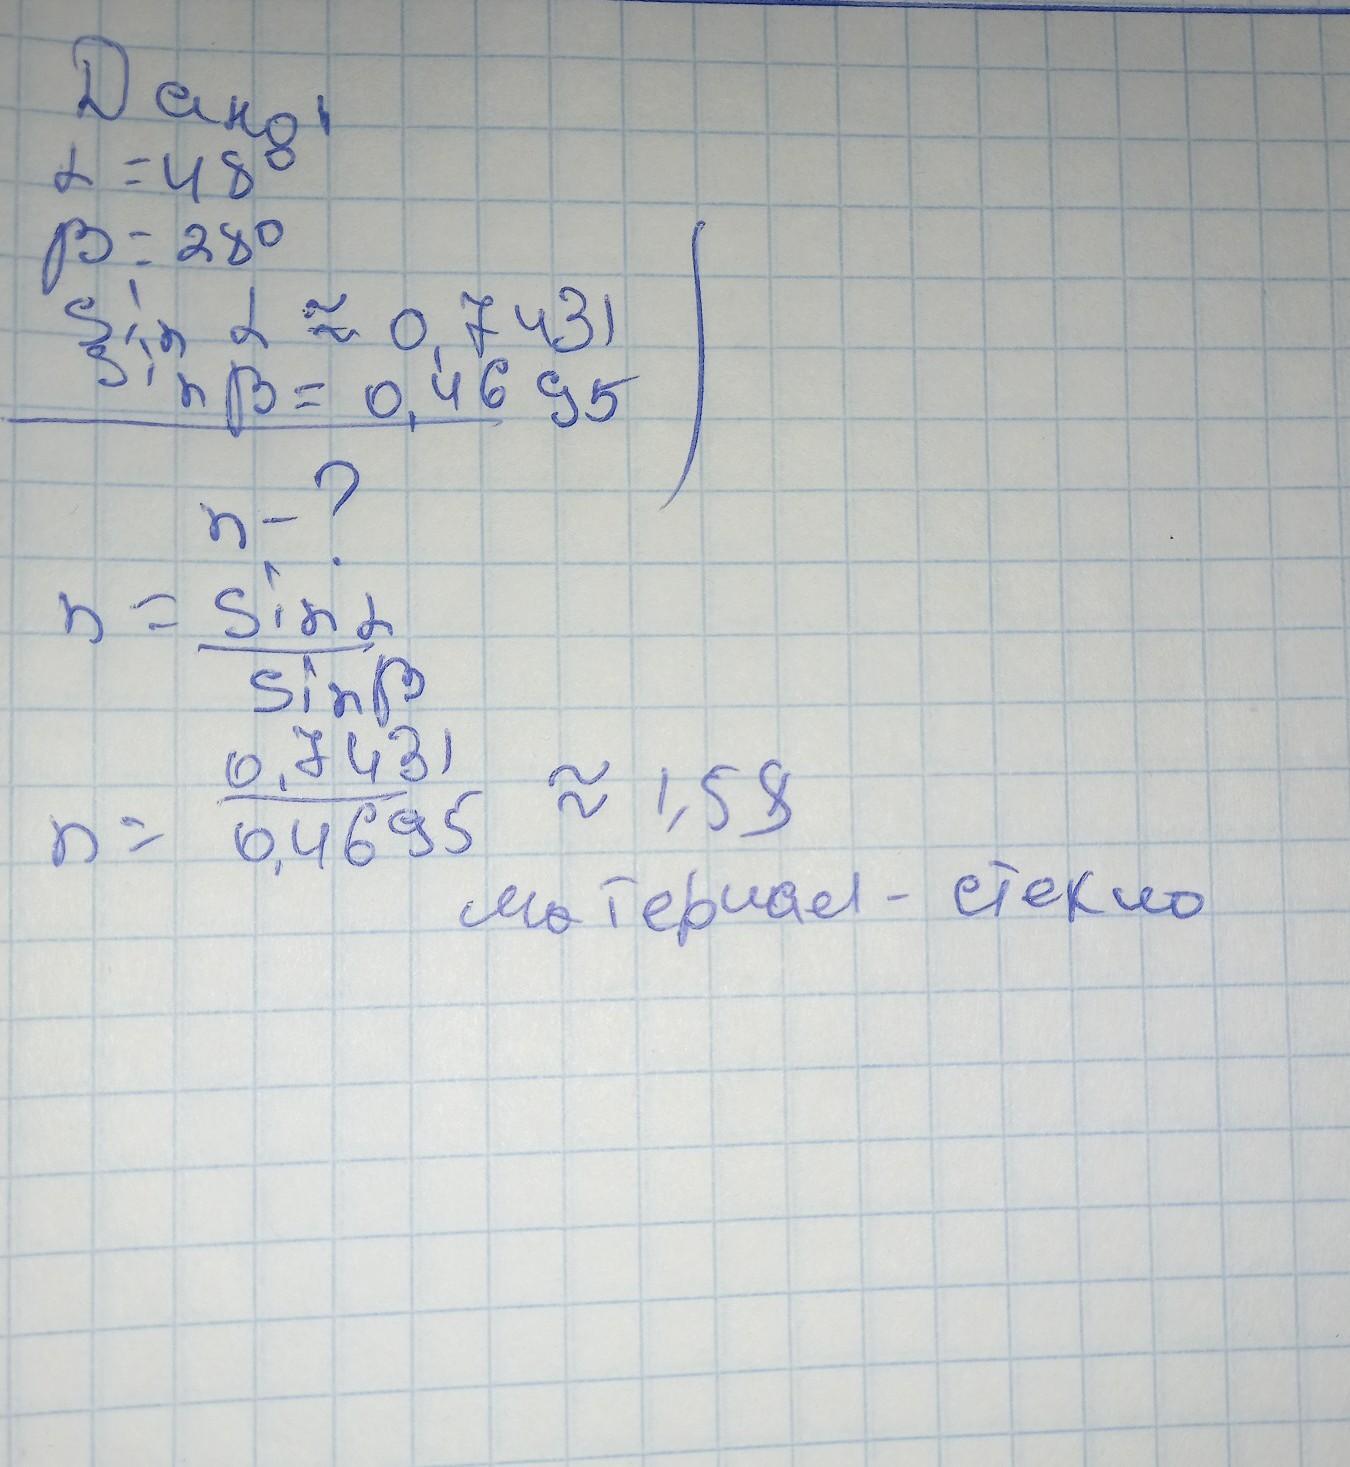 Дано:
α = 48°
β = 28°
sin α ≈ 0,7431
sin β = 0,4695
n - ?
n = sin α
sin β
0,7431
n = 0,4695 ≈ 1,58
материал - стекло